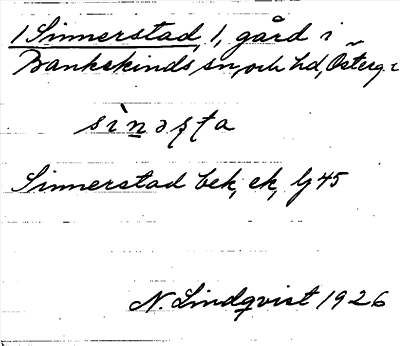 1 Sinnerstad, 1, gård i
Bankekinds sn, och hd, Österg.
sìnəsta
Sinnerstad bek, ek, lj 45
N. Lindqvist 1926